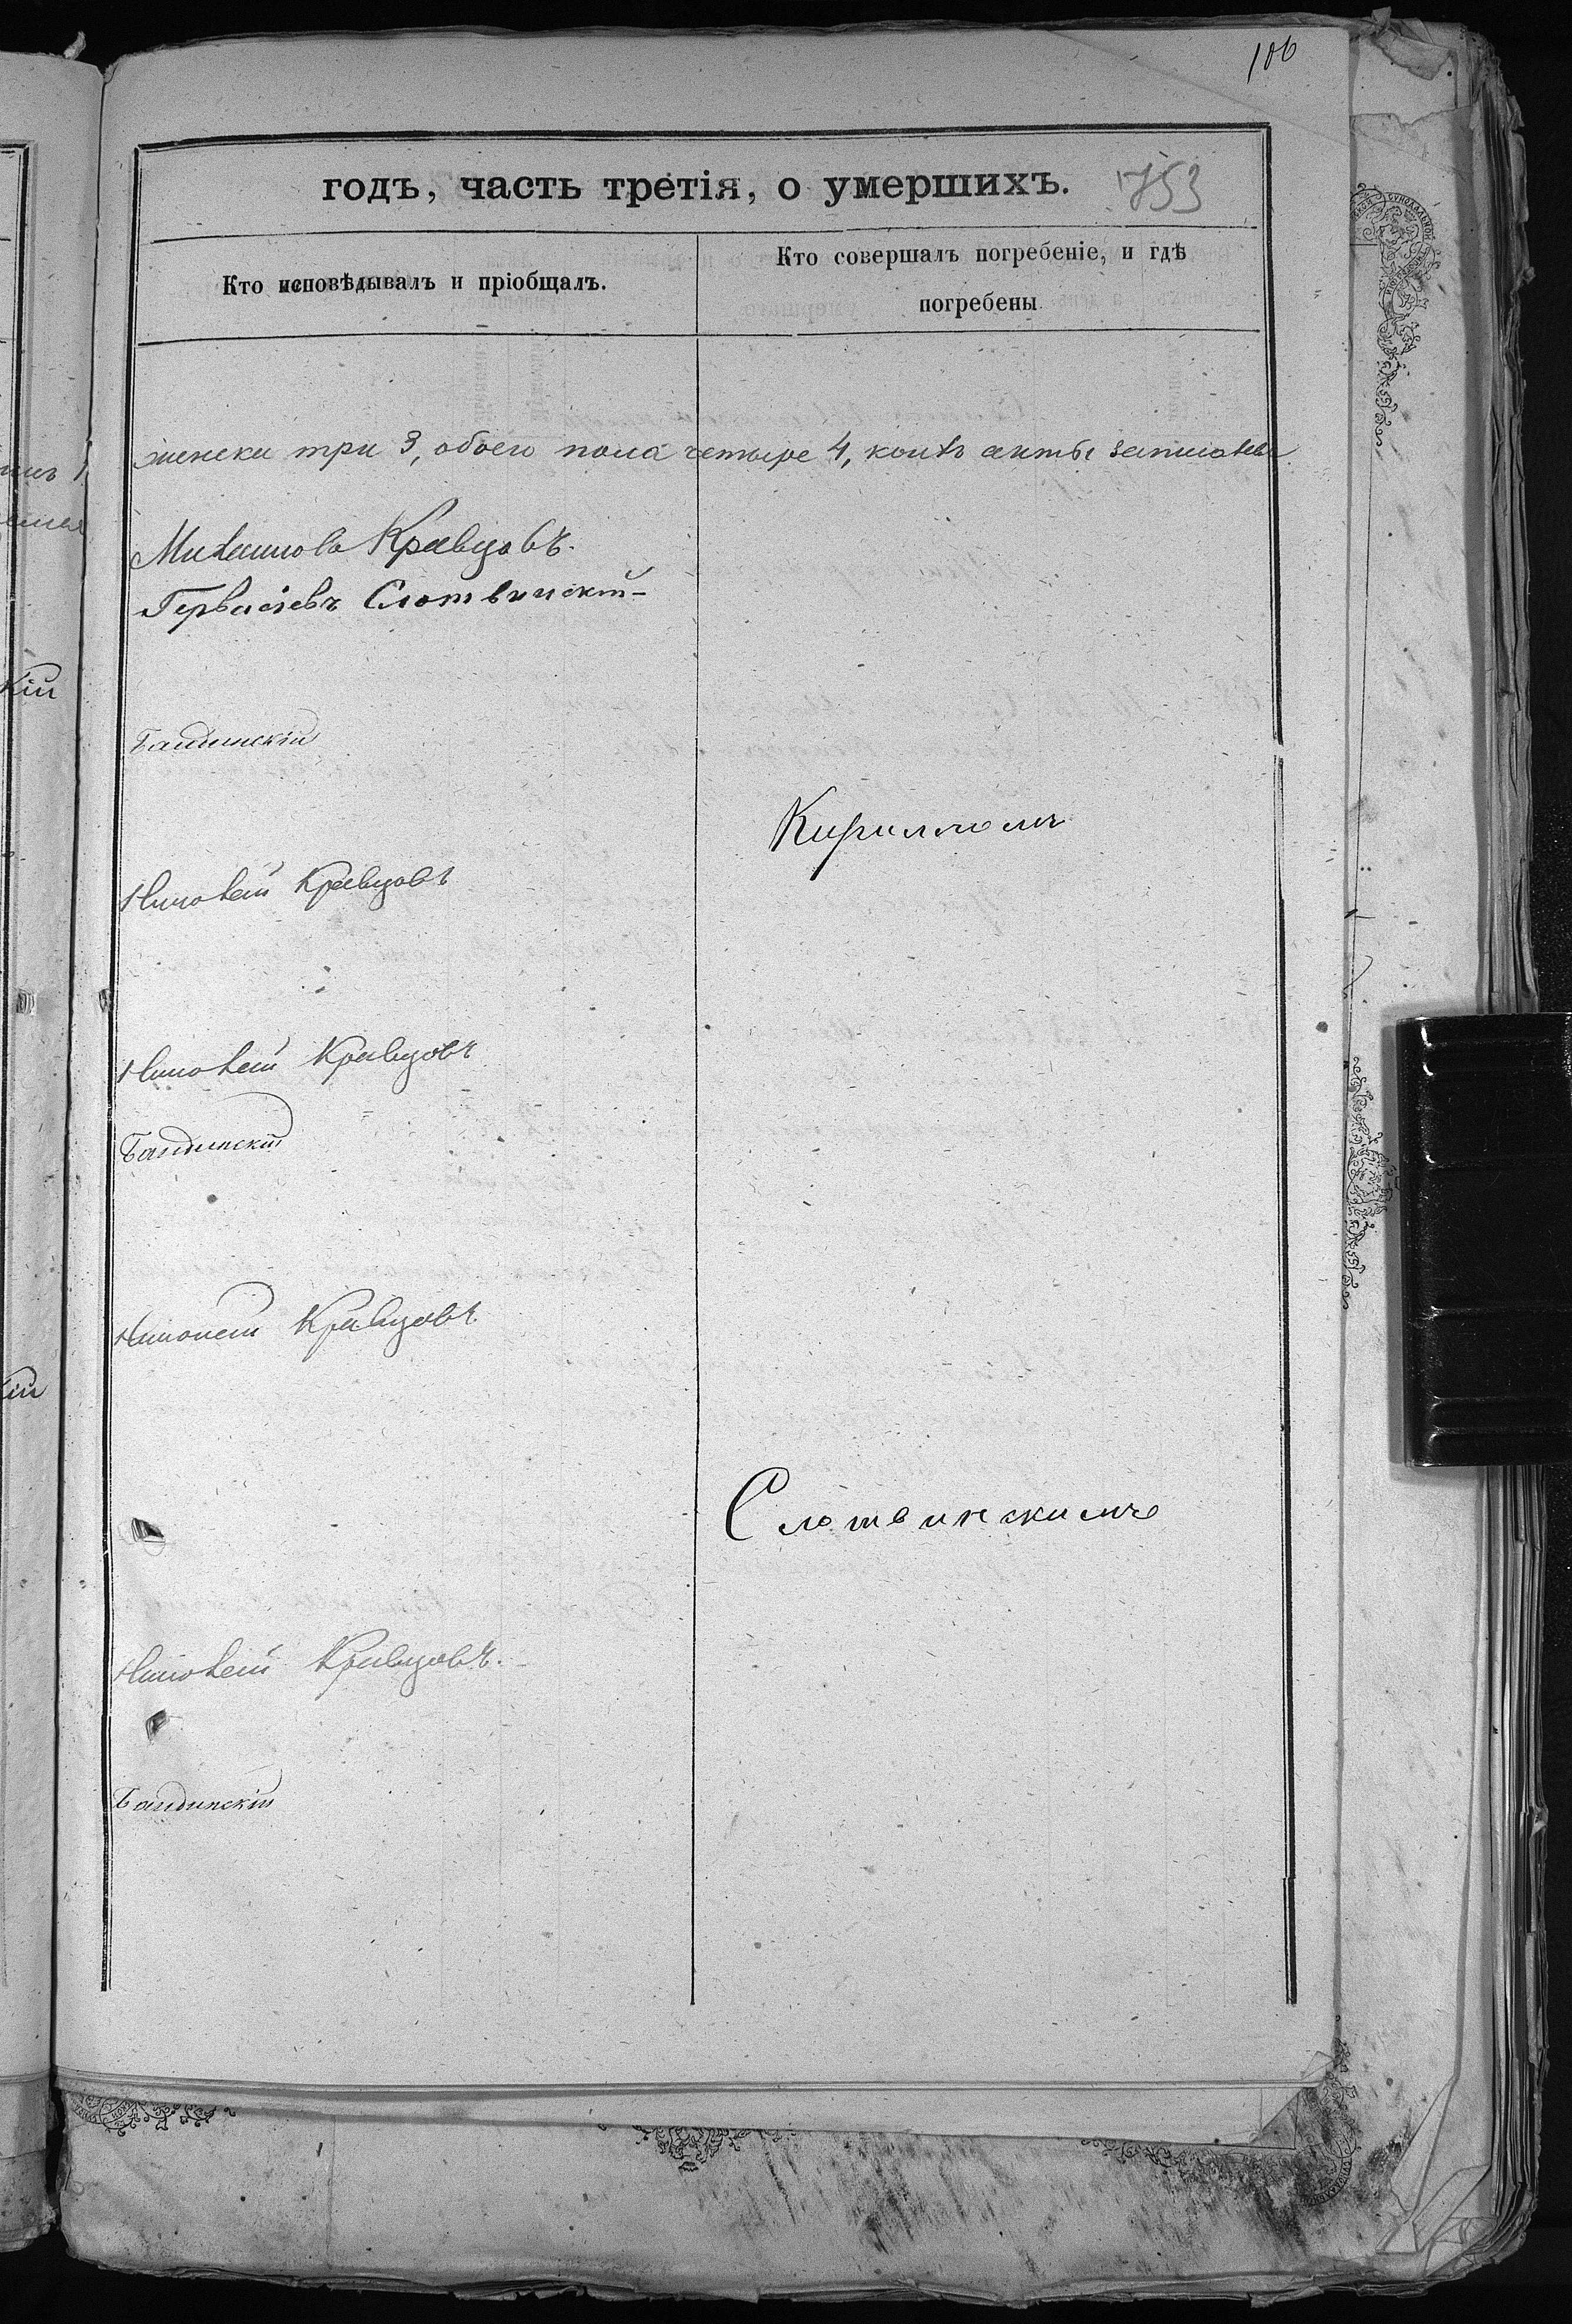 106
годъ, часть третія, о умершихъ. 753
Кто исповѣдывалъ и пріобщалъ.
Кто совершалъ погребеніе, и гдѣ
погребены
женска три 3, обоего пола четыре 4, коихъ акты записаны
Михаиловъ Кравцовъ.
Гервасіевъ Слотвинскій
кій
Бандинскій
Кирилломъ
Николай Кравцовъ
Николай Кравцовъ
Бандинскій
Николай Кравцовъ
Слотвинскимъ
Николай Кравцовъ.
Бандинскій